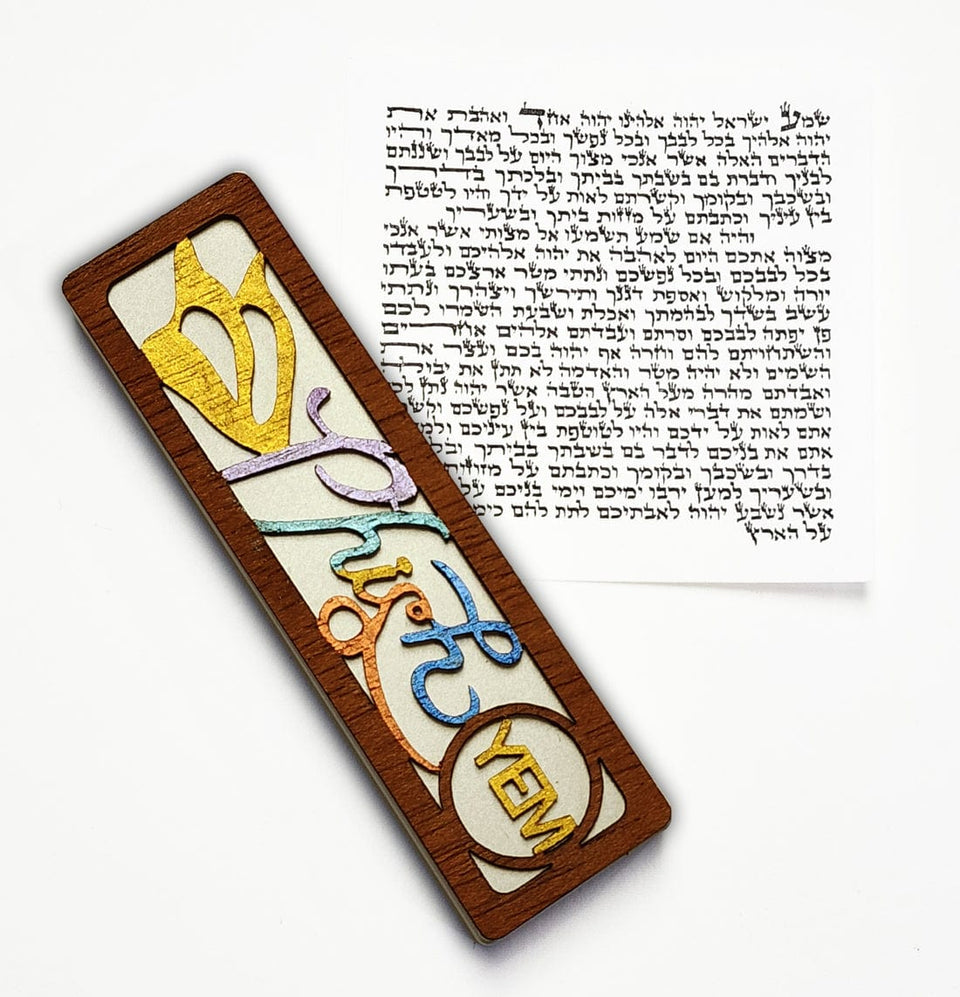 שמע ישראל יהוה אלהינו יהוה אחד ואהבת את
יהוה אלהיך בכל לבבך ובכל נפשך ובכל מאדך והיו
הדברים האלה אשר אנכי מצוך היום על לבבך ושננתם
לבניך ודברת בם בשבתך בביתך ובלכתך בדרך
ובשכבך ובקומך וקשרתם לאות על ידך והיו לטטפת
בין עיניך וכתבתם על מזזות ביתך ובשעריך
והיה אם שמע תשמעו אל מצותי אשר אנכי
מצוה אתכם היום לאהבה את יהוה אלהיכם ולעבדו
בכל לבבכם ובכל נפשכם ונתתי מטר ארצכם בעתו
יורה ומלקוש ואספת דגנך ותירשך ויצהרך ונתתי
עשב בשדך לבהמתך ואכלת ושבעת השמרו לכם
פן יפתה לבבכם וסרתם ועבדתם אלהים אחרים
והשתחויתם להם וחרה אף יהוה בכם ועצר את
השמים ולא יהיה מטר והאדמה לא תתן את יבולה
ואבדתם מהרה מעל הארץ הטבה אשר יהוה נתן
ושמתם את דברי אלה על לבבכם ועל נפשכם
אתם לאות על ידכם והיו לטוטפת בין עיניכם
אתם את בניכם לדבר בם בשבתך בביתך
בדרך ובשכבך ובקומך וכתבתם על
ובשעריך למען ירבו ימיכם וימי בניכם על
אשר נשבע יהוה לאבתיכם לתת להם
על הארץ
ש
YEM